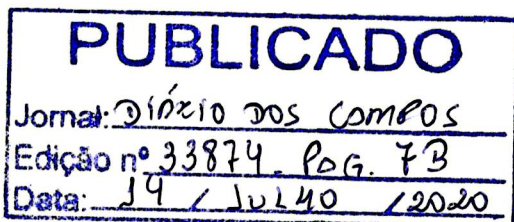 PUBLICADO
Jornal: DIÁRIO DOS CAMPOS
Edição nº 33874 PAG. 7B
Data: 14 / JULHO / 2020